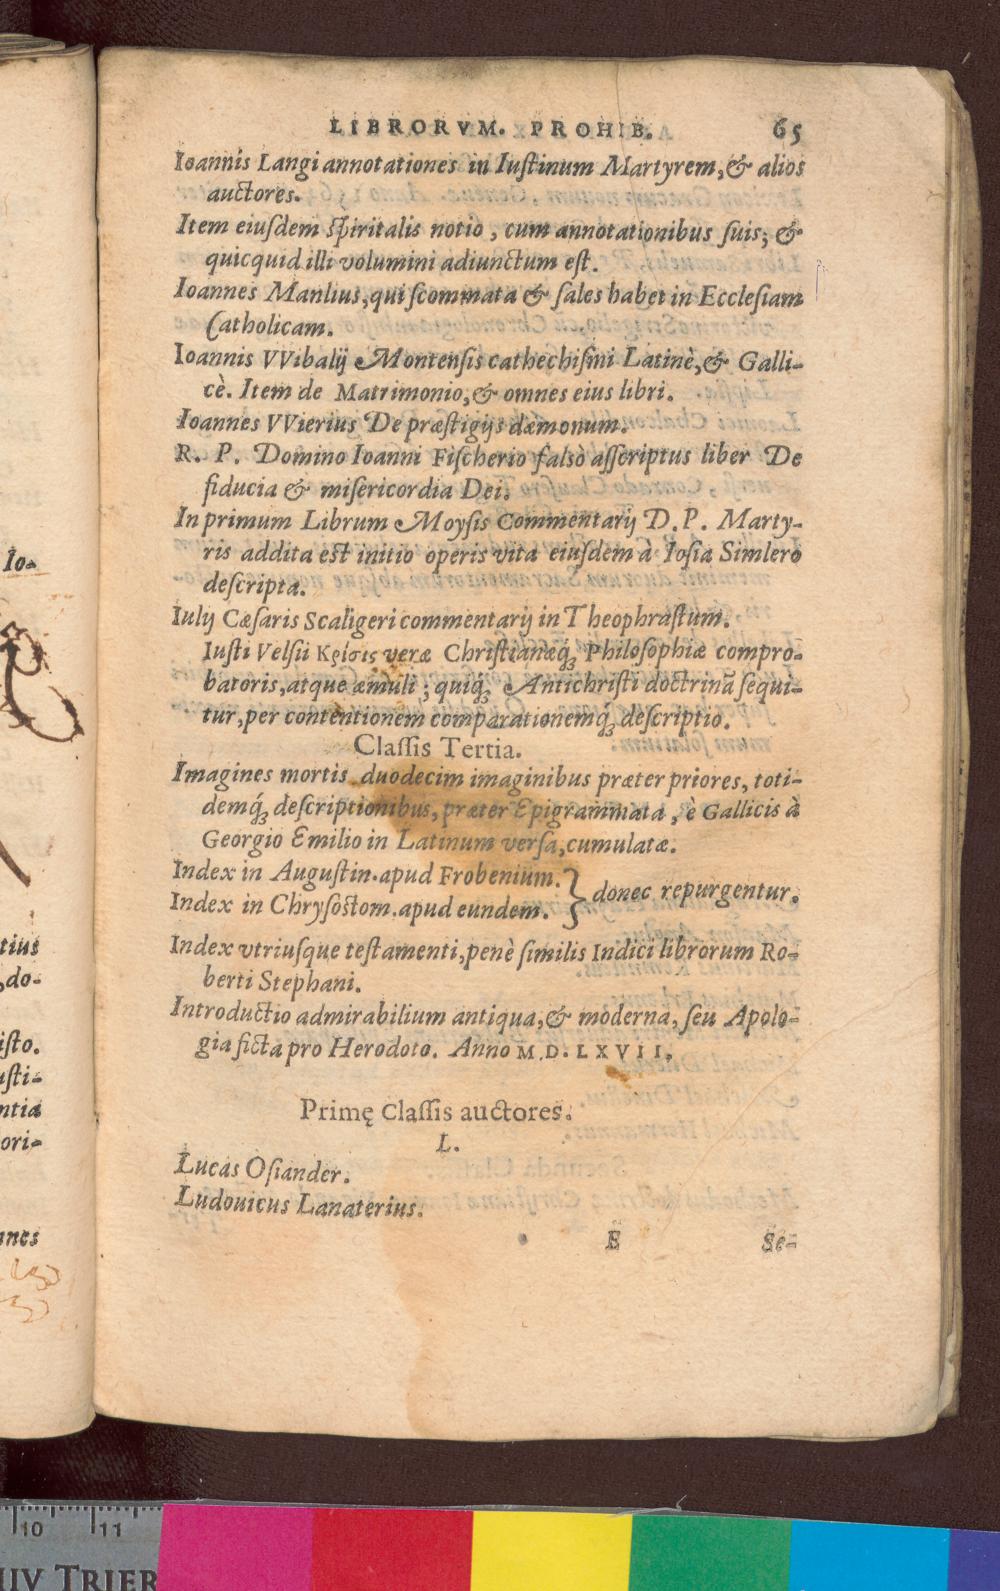 LIBRORVM. PROHIB. 65
Ioannis Langi annotationes in Iuſtinum Martyrem, & alios
auctores.
Item eiuſdem ſpiritalis notio, cum annotationibus ſuis; &
quicquid illi volumini adiunctum eſt.
Ioannes Manlius, qui ſcommata & ſales habet in Eccleſiam
Catholicam.
Ioannis VVibalij Montenſis cathechiſmi Latinè, & Galli-
cè. Item de Matrimonio, & omnes eius libri.
Ioannes VVierius De præſtigijs dæmonum.
R. P. Domino Ioanni Fiſcherio falsò aſſcriptus liber De
fiducia & miſericordia Dei.
In primum Librum Moyſis Commentarij D. P. Marty-
ris addita eſt initio operis vita eiuſdem à Ioſia Simlero
deſcripta.
Iulij Cæſaris Scaligeri commentarij in Theophraſtum.
Iuſti Velſii Κρίσις veræ Chriſtianæq́; Philoſophiæ compro-
batoris, atque æmuli; quiq́; Antichriſti doctrinã ſequi-
tur, per contentionem comparationemq́; deſcriptio.
Claſſis Tertia.
Imagines mortis duodecim imaginibus præter priores, toti-
demq́; deſcriptionibus, præter Epigrammata, è Gallicis à
Georgio Emilio in Latinum verſa, cumulatæ.
Index in Auguſtin. apud Frobenium. } donec repurgentur.
Index in Chryſoſtom. apud eundem.
Index vtriuſque teſtamenti, penè ſimilis Indici librorum Ro-
berti Stephani.
Introductio admirabilium antiqua, & moderna, ſeu Apolo-
gia ficta pro Herodoto. Anno M. D. LXVII.
Primę Claſſis auctores.
L.
Lucas Oſiander.
Ludouicus Lanaterius.
E Se-
Io-
tius
do-
iſto.
uſti-
ntia
ori-
nnes
10 11
TRIER